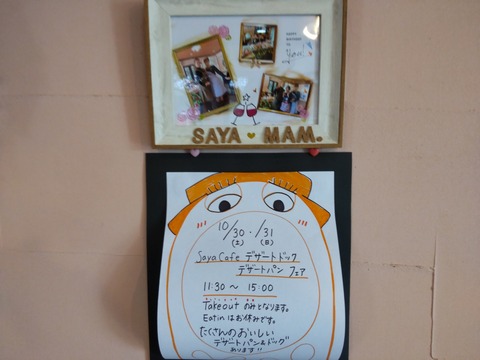 SAYA MAM.
10/30・/31
(土) (日)
Saya Cafe デザートドック
デザートパン フェア
11:30 〜 15:00
Takeout のみとなります。
Eatin はお休みです。
たくさんのおいしい
デザートパン&ドッグ
あります!!